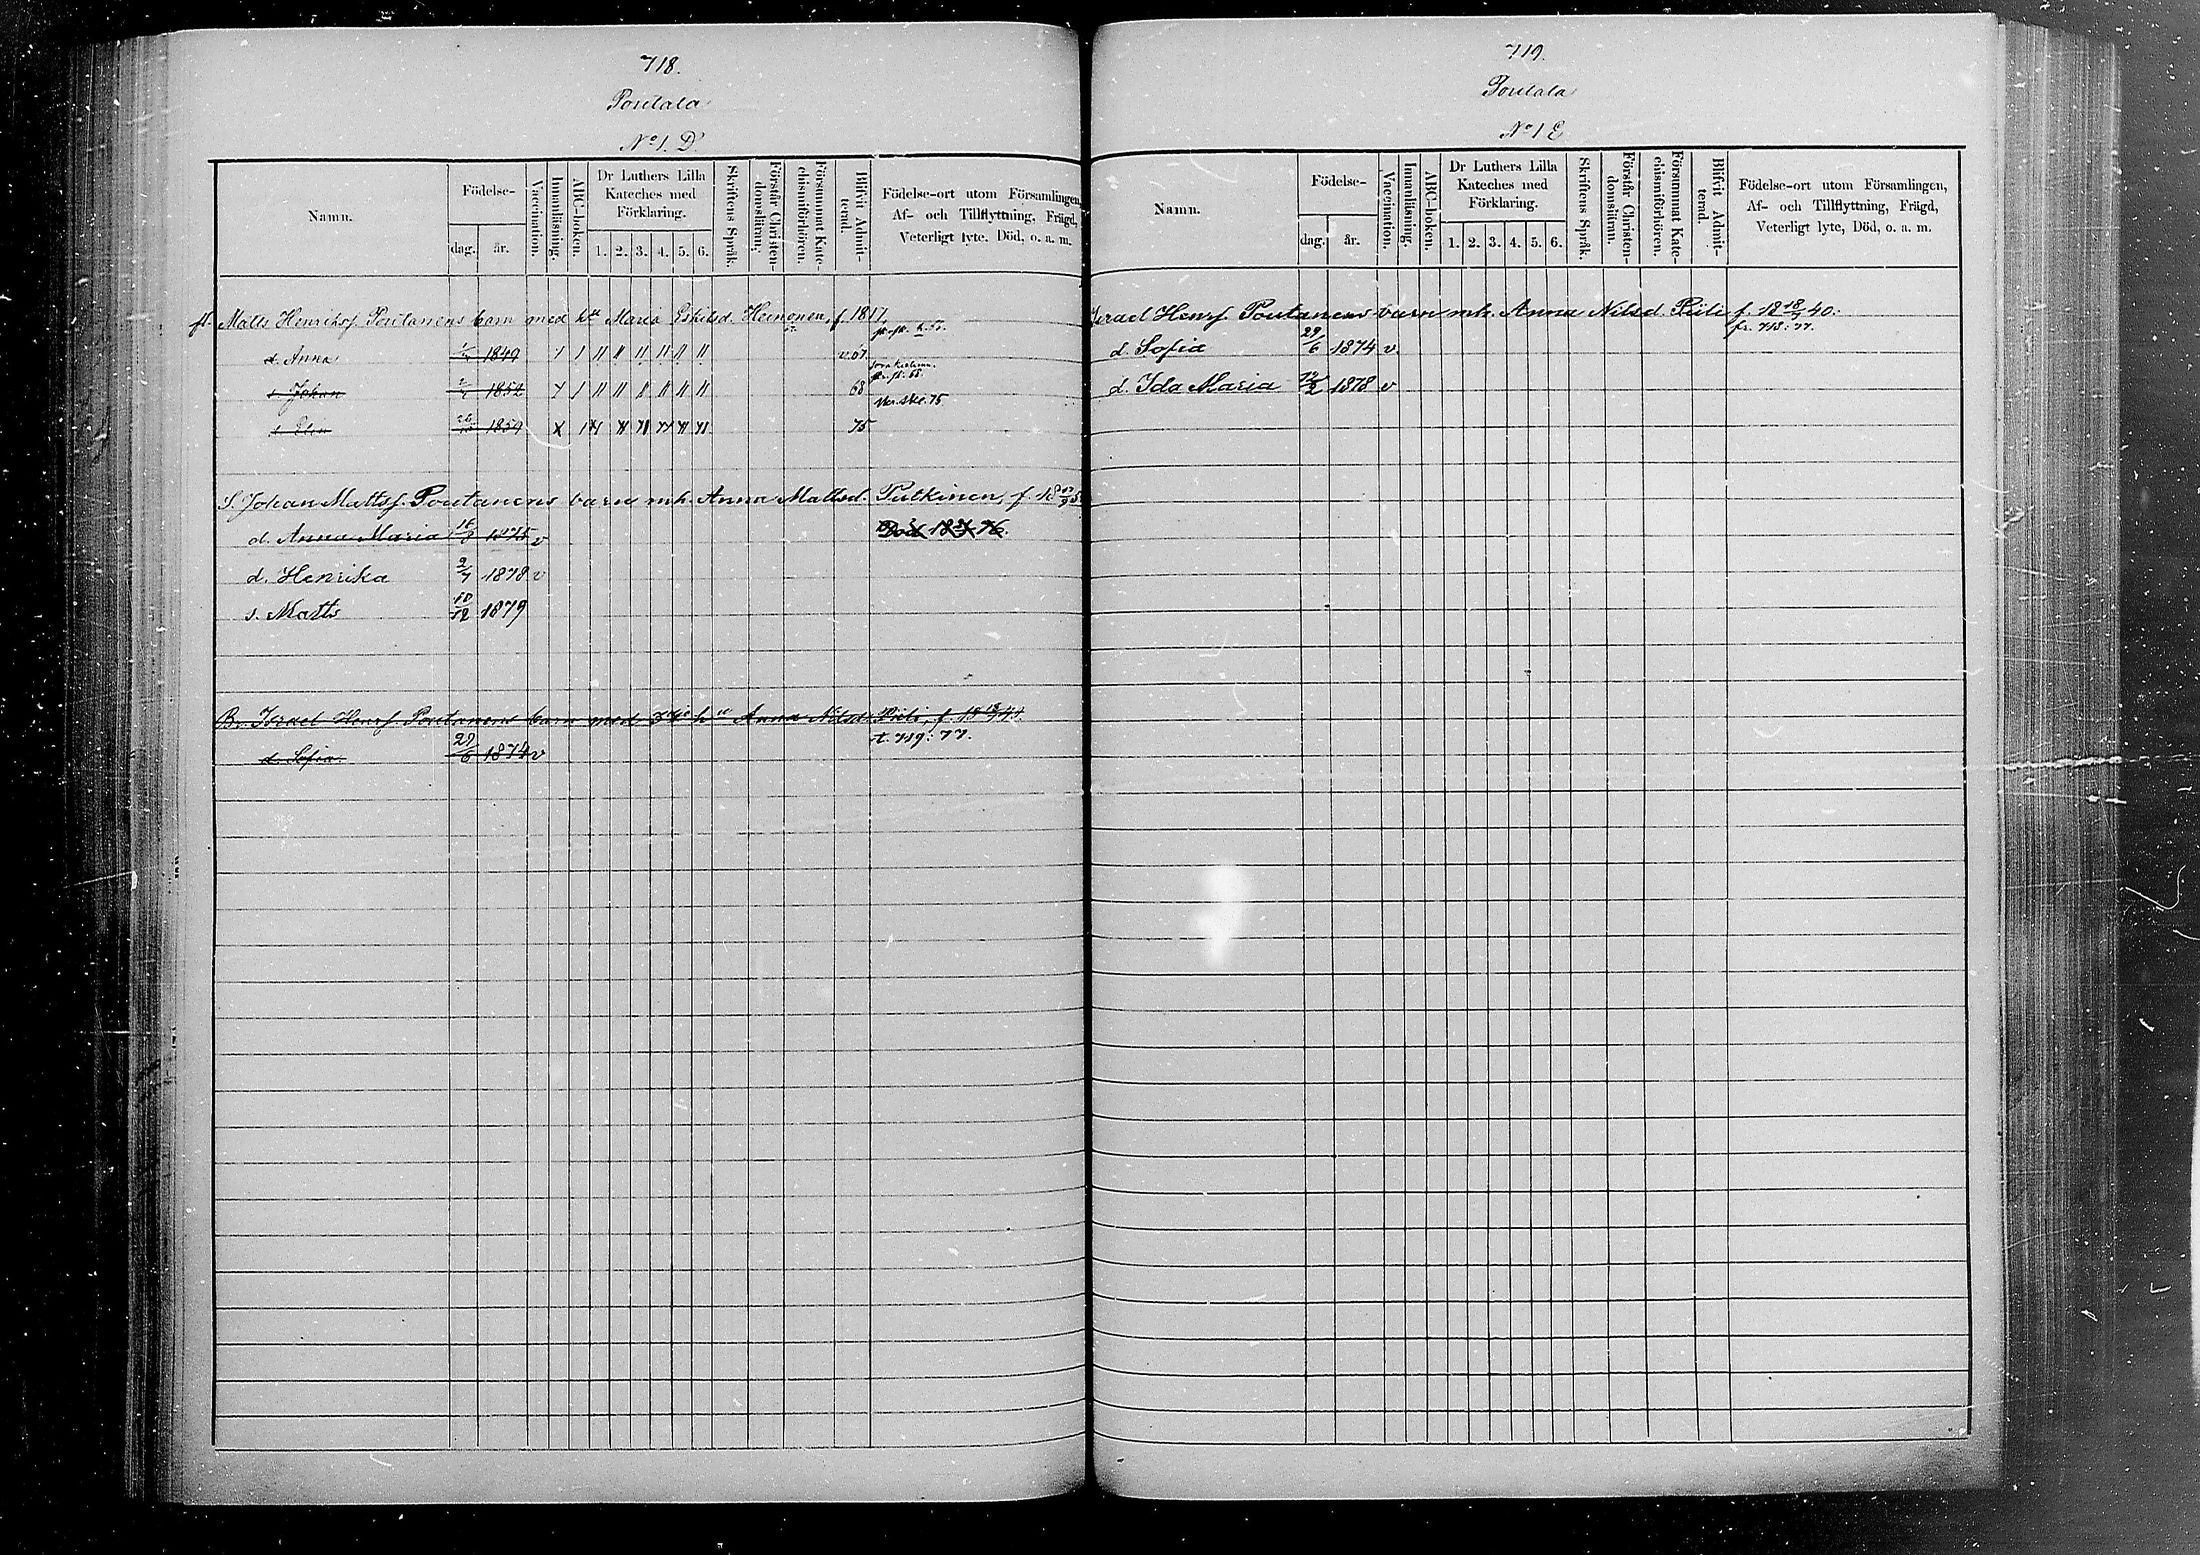 718.
Poutala
No 1. D.
Namn.
Födelse-
dag.
år.
Vaccination.
Innanläsning.
ABC-boken.
Dr Luthers Lilla
Kateches med
Förklaring.
1. 2. 3. 4. 5. 6.
Skriftens Språk.
Förstår Christen-
domsläran.
Försummat Kate-
chismiförhören.
Blifvit Admit-
terad.
Födelse-ort utom Församlingen,
Af- och Tillflyttning, Frägd,
Veterligt lyte, Död, o. a. m.
Matts Henrikss. Poutanens barn med Maria Eskilsd. Heinonen, f. 1817.
d. Anna 1849
s. Johan 1852 68
s. Elin 1859 75
S. Johan Mattss. Poutanens barn mh. Anna Mattsd. Putkinen, f.
d. Anna Maria 1875 v Död 76.
d. Henrika 2/7 1878 v
s. Matts 18/12 1879
Br. Israel Henrs. Poutanens barn med Anna Nilsd. Piili, f.
t. 719: 77.
d. Sofia 29/6 1874 v
719.
Poutala
No 1 E
Namn.
Födelse-
dag.
år.
Vaccination.
Innanläsning.
ABC-boken.
Dr Luthers Lilla
Kateches med
Förklaring.
1. 2. 3. 4. 5. 6.
Skriftens Språk.
Förstår Christen-
domsläran.
Försummat Kate-
chismiförhören.
Blifvit Admit-
terad.
Födelse-ort utom Församlingen,
Af- och Tillflyttning, Frägd,
Veterligt lyte, Död, o. a. m.
Israel Henrs. Poutanens barn mh. Anna Nilsd. Piili f. 18 18/7 40.
fr. 718: 77.
d. Sofia 29/6 1874 v.
d. Ida Maria 1878 v